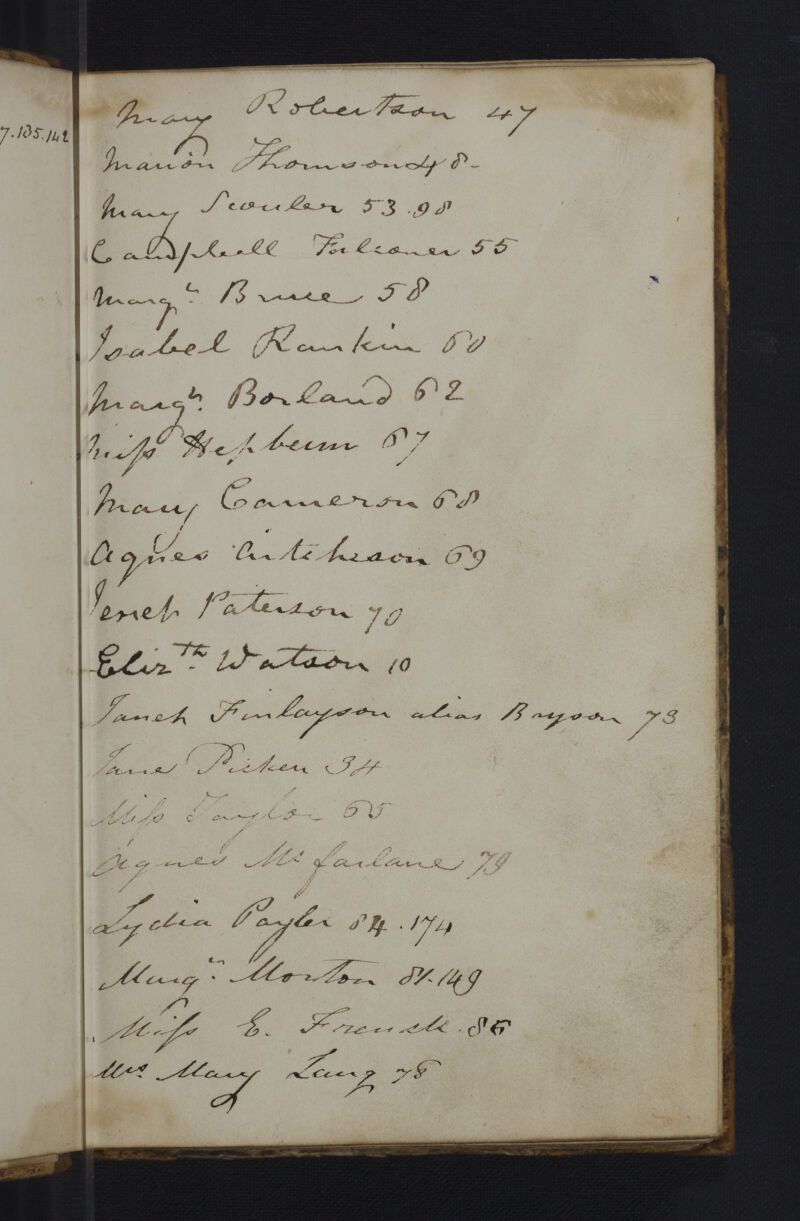 7.135.142
Mary Robertson 47
Marion Thomson 48-
Mary Scouler 53.98
Campbell Falconer 55
Margt. Bruce 58
Isabel Rankin 60
Margt. Borland 62
Miss Hepburn 67
Mary Cameron 68
Agnes Aitcheson 69
Jenet Paterson 70
Elizth. Watson 10
Janet Finlayson alias Bryson 73
Jane Picken 34
Miss Taylor 65
Agnes Mcfarlane 79
Lydia Payler 84.174
Margt. Morton 81.149
Miss E. French. 86
Mrs Mary Lang 78